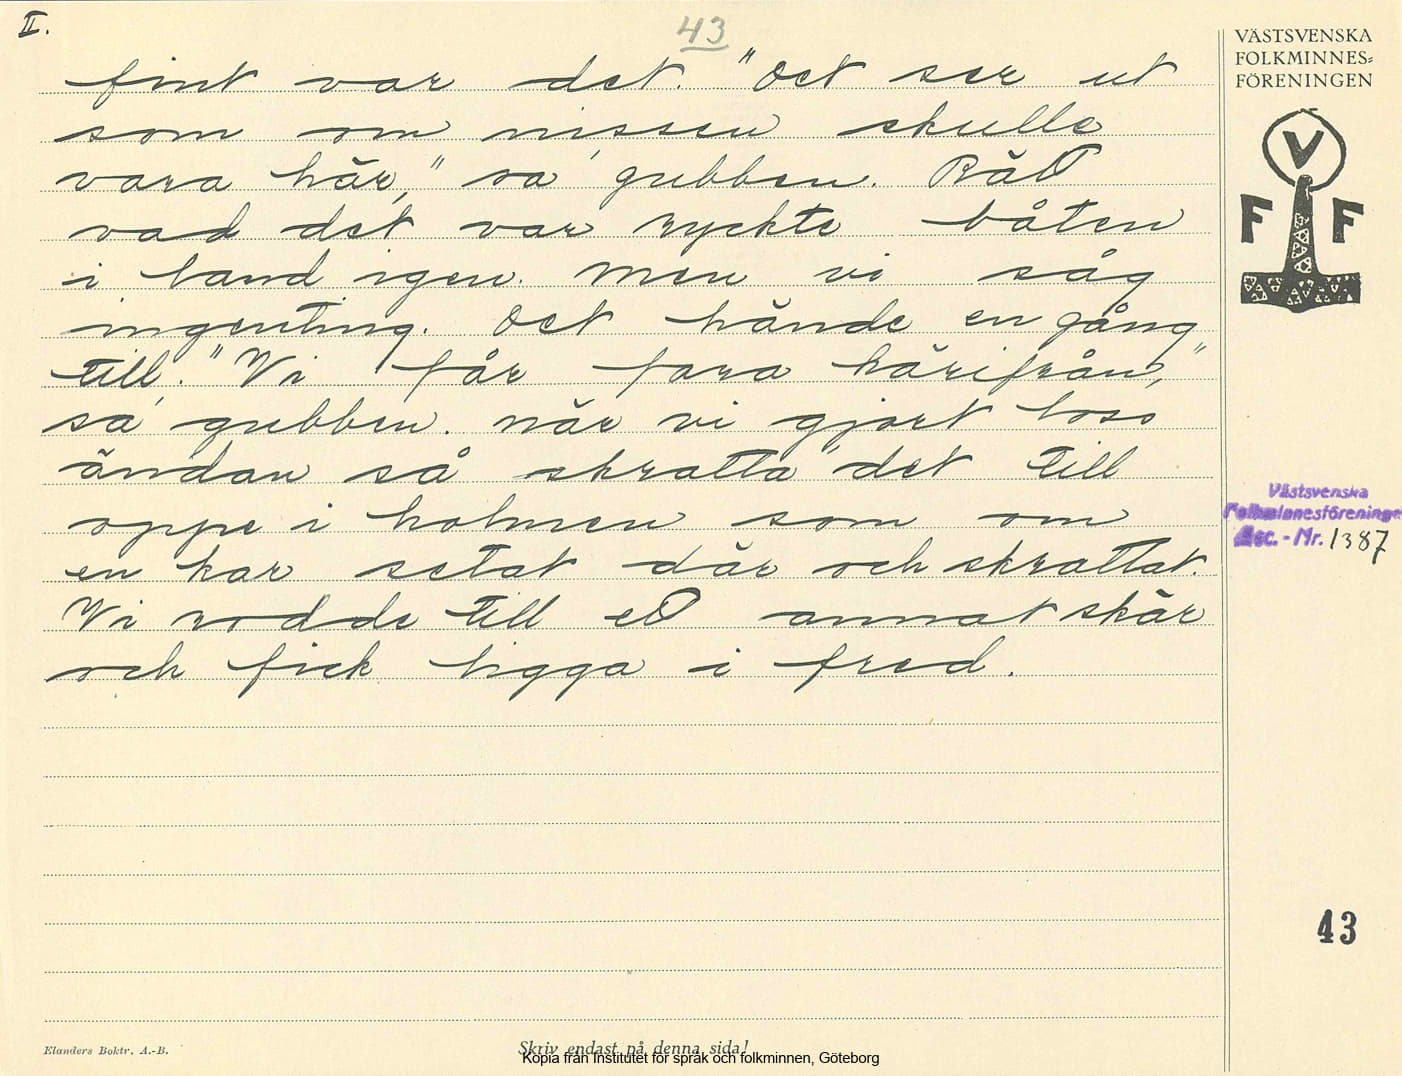 II.
43
fint var det. "Det ser ut
som om nissen skulle
vara här," sa' gubben. Rätt
vad det var ryckte båten
i land igen. Men vi såg
ingenting. Det hände en gång
till. "Vi får fara härifrån,"
sa' gubben. När vi gjort loss
ändan så skratta' det till
oppe i holmen som om
en kar setat där och skrattat.
Vi rodde till ett annat skär
och fick ligga i fred.
VÄSTSVENSKA
FOLKMINNES-
FÖRENINGEN
V
F F
Västsvenska
Folkminnesföreninge
Acc. - Nr. 1387
43
Elanders Boktr. A.-B.
Skriv endast på denna sida!
Kopia från Institutet för språk och folkminnen, Göteborg